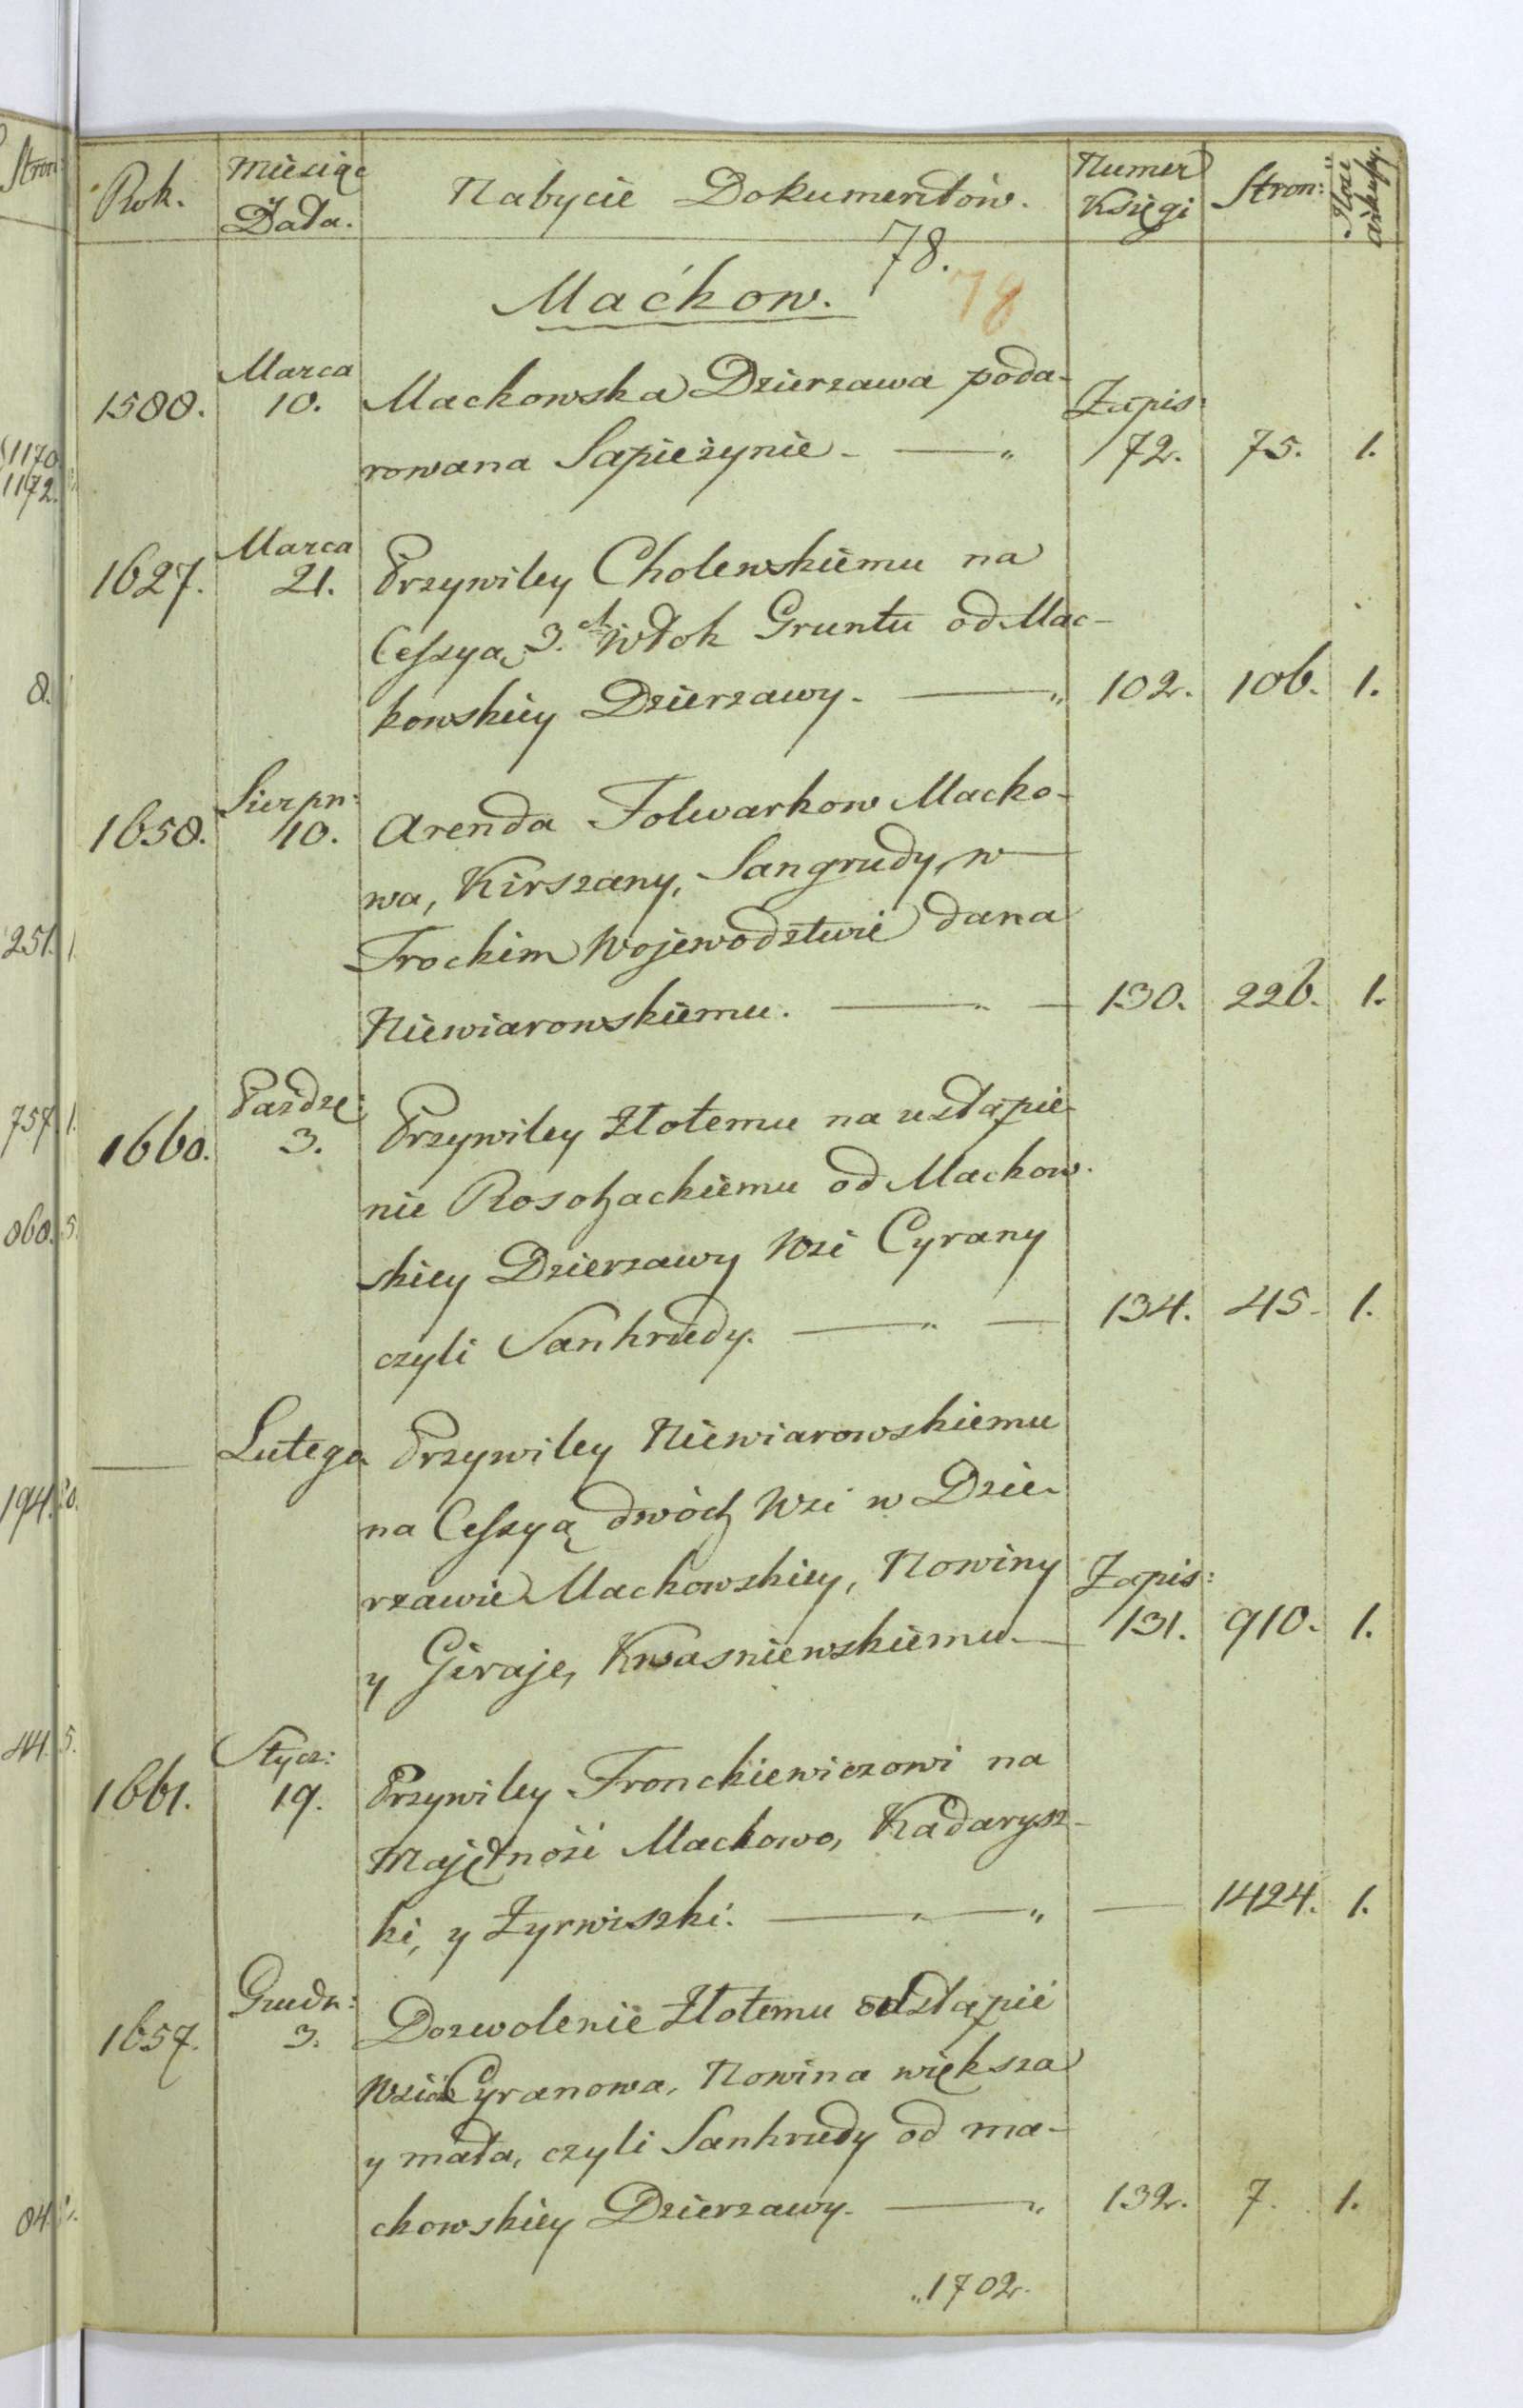 Rok. Miesiąc Data. Nabycie Dokumentów. Numer Księgi Stron: Ilość arkuszy.
78.
Maćkow. 78
1588. Marca 10. Mackowska Dzierzawa poda-
rowana Sapieżynie - — „ Zapis: 72. 75. 1.
1627. Marca 21. Przywiley Cholewskiemu na
Cessyą 3.ch Włok Gruntu od Mac-
kowskiey Dzierzawy. — „ 102. 106. 1.
1658. Sierpn: 10. Arenda Folwarkow Macko-
wa, Kirszany, Sangrudy, w
Trockim Wojewodztwie dana
Niewiarowskiemu. — „ — 130. 226. 1.
1660. Paźdze: 3. Przywiley Złotemu na ustąpie-
nie Rosochackiemu od Mackow-
skiey Dzierzawy Wsi Cyrany
czyli Sankrudy. — „ — 134. 45. 1.
— Lutego Przywiley Niewiarowskiemu
na Cessyą dwóch Wsi w Dzie-
rzawie Mackowskiey, Nowiny
y Giraje, Kwasniewskiemu. — Zapis: 131. 910. 1.
1661. Stycz: 19. Przywiley Fronckiewiczowi na
Majętność Mackowo, Kadarysz-
ki, y Żyrwiszki. — „ — „ — 1424. 1.
1657. Grudn: 3. Dozwolenie Złotemu odstąpić
Cyranowa, Nowina większa
y mała, czyli Sankrudy od ma-
ckowskiey Dzierzawy. — „ 132. 7. 1.
„1702.